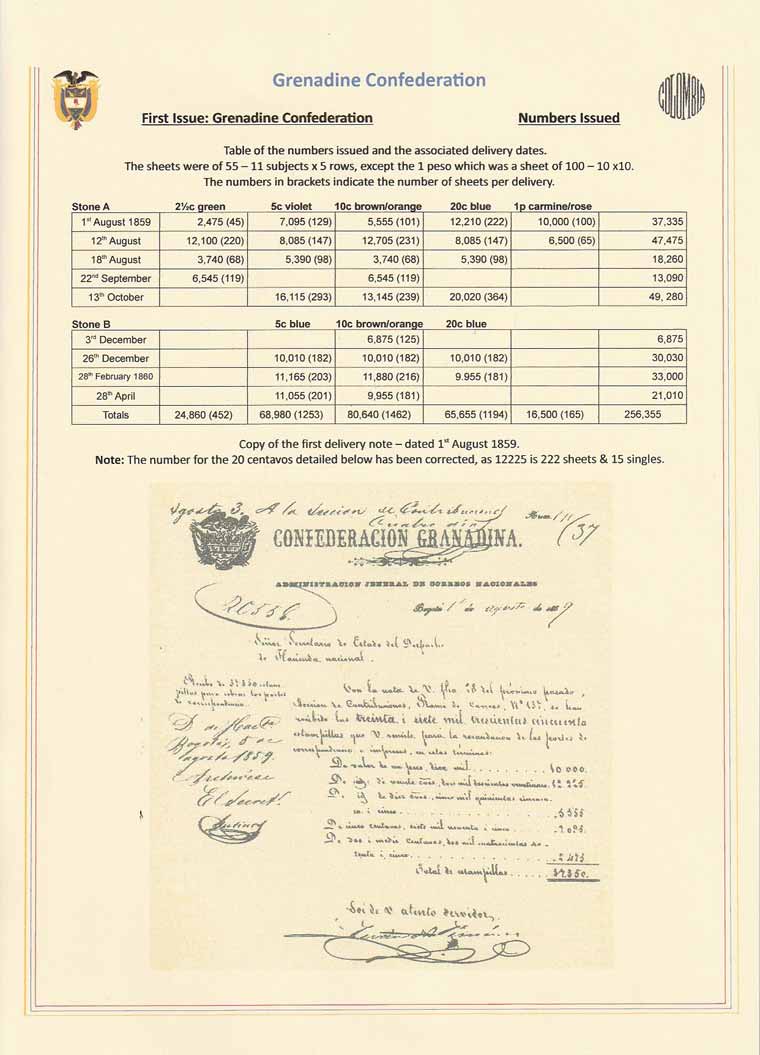 Grenadine Confederation
COLOMBIA
First Issue: Grenadine Confederation Numbers Issued
Table of the numbers issued and the associated delivery dates.
The sheets were of 55 – 11 subjects x 5 rows, except the 1 peso which was a sheet of 100 – 10 x10.
The numbers in brackets indicate the number of sheets per delivery.
Stone A 2½c green 5c violet 10c brown/orange 20c blue 1p carmine/rose
1st August 1859 2,475 (45) 7,095 (129) 5,555 (101) 12,210 (222) 10,000 (100) 37,335
12th August 12,100 (220) 8,085 (147) 12,705 (231) 8,085 (147) 6,500 (65) 47,475
18th August 3,740 (68) 5,390 (98) 3,740 (68) 5,390 (98) 18,260
22nd September 6,545 (119) 6,545 (119) 13,090
13th October 16,115 (293) 13,145 (239) 20,020 (364) 49, 280
Stone B 5c blue 10c brown/orange 20c blue
3rd December 6,875 (125) 6,875
26th December 10,010 (182) 10,010 (182) 10,010 (182) 30,030
28th February 1860 11,165 (203) 11,880 (216) 9.955 (181) 33,000
28th April 11,055 (201) 9,955 (181) 21,010
Totals 24,860 (452) 68,980 (1253) 80,640 (1462) 65,655 (1194) 16,500 (165) 256,355
Copy of the first delivery note – dated 1st August 1859.
Note: The number for the 20 centavos detailed below has been corrected, as 12225 is 222 sheets & 15 singles.
Agosto 3. A la Seccion de Contribuciones
(37
CONFEDERACION GRANADINA.
ADMINISTRACION JENERAL DE CORREOS NACIONALES
20556.
Bogotá 1º de agosto de 1859
Señor Secretario de Estado del Despacho
de Hacienda nacional.
Con la nota de V. fha 28 del próximo pasado,
Seccion de Contribuciones, Ramo de Correos, Nº 137, se han
recibido las treinta i siete mil trescientas cincuenta
estampillas que V. remite para la recaudacion de los portes de
correspondencia e impresos, en estos términos:
De valor de un peso, diez mil 10 000.
De id. de veinte ctvos, doce mil doscientas veinticinco. 12 225.
De id. de diez ctvos, cinco mil quinientas cincuen
ta i cinco 5 555
De cinco centavos, siete mil noventa i cinco 7 095.
De dos i medio centavos, dos mil cuatrocientas se
tenta i cinco 2 475
Total de estampillas 37.350.
Soi de V. atento servidor,
D. de Hacda
Bogotá, 5 de
agosto 1859.
Archívese
El Secretº